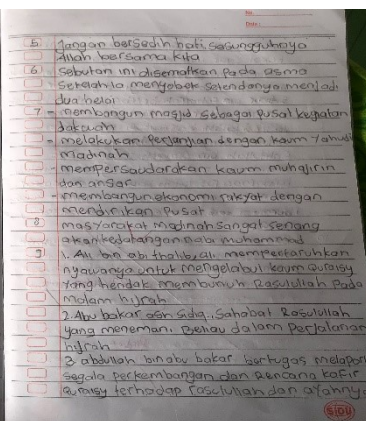 No.
Date:
5 Jangan bersedih hati, sesungguhnya
Allah bersama kita
6 Sebutan ini disematkan pada asma
Setelah Ia menyobek Selendangnya menjadi
dua helai
7 - membangun masjid sebagai pusat kegiatan
dakwah
- melakukan Perjanjian dengan kaum Yahudi
madinah
- mempersaudarakan kaum muhajirin
dan ansar
- membangun ekonomi rakyat dengan
mendirikan Pusat
8 masyarakat madinah sangat senang
akan kedatangan nabi muhammad
9 1. Ali bin abi thalib, ali mempertaruhkan
nyawanya untuk mengelabui kaum quraisy
yang hendak membunuh Rasulullah pada
malam hijrah
2. Abu bakar ash sidiq, Sahabat Rasulullah
yang menemani Beliau dalam Perjalanan
hijrah
3 abdullah bin abu bakar bertugas melapor
segala perkembangan dan Rencana kafir
Quraisy terhadap rasulullah dan ayahnya
SIDU